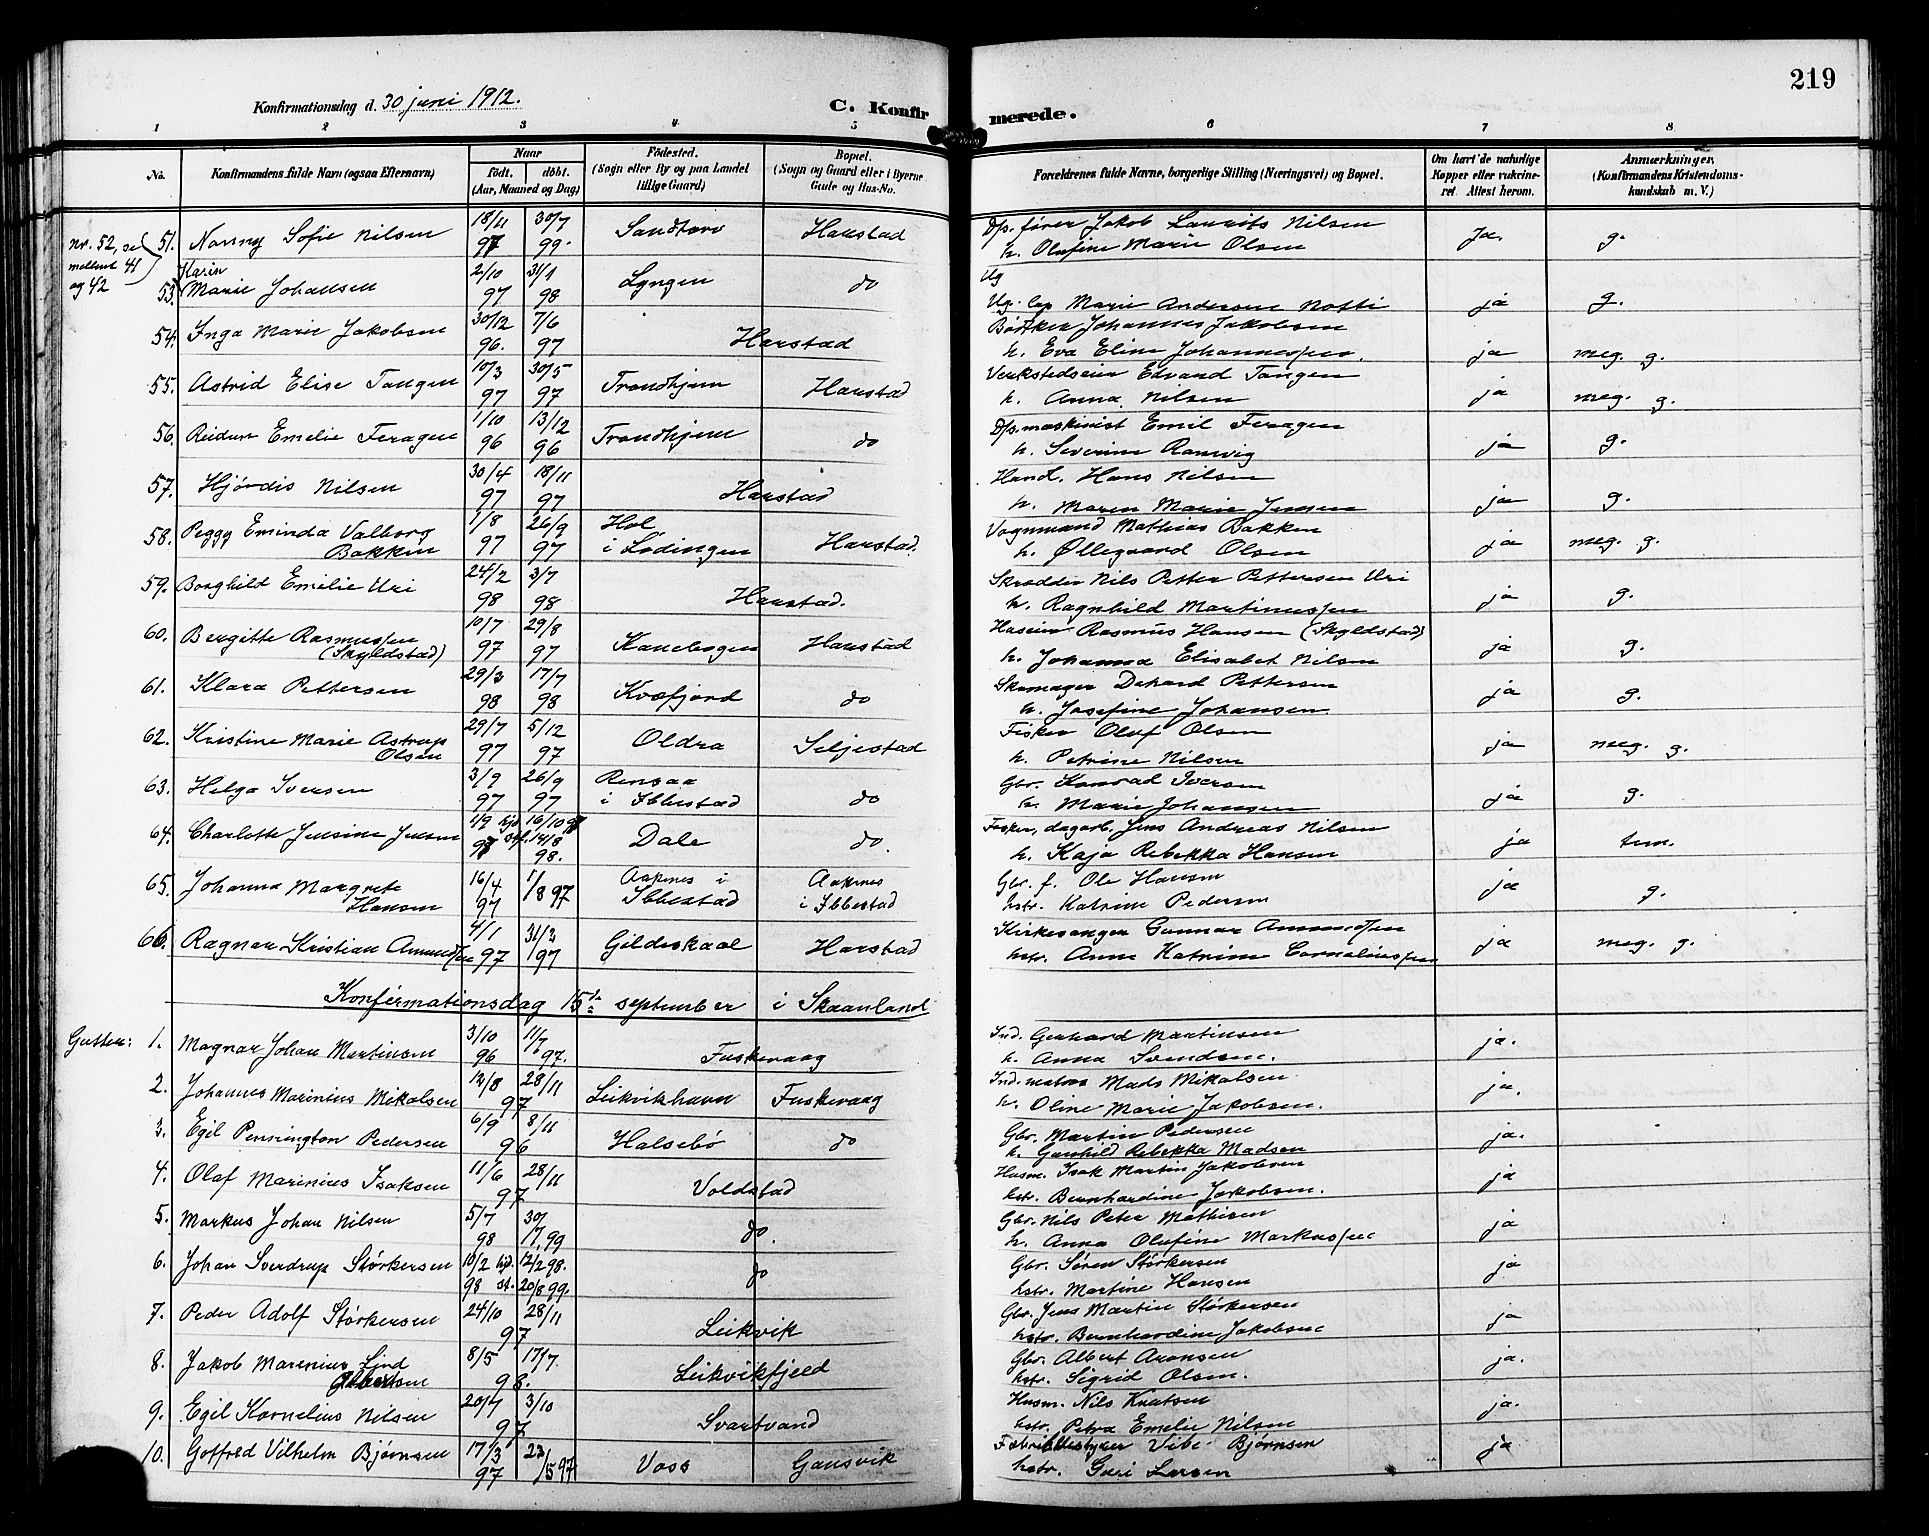 219
Konfirmationsdag d. 30 juni 1912.
C. Konfirmerede.
1 2 3 4 5 6 7 8
No. Konfirmandens fulde Navn (ogsaa Efternavn) Naar født. døbt. (Aar, Maaned og Dag) Fødested. (Sogn eller By og paa Landet tillige Gaard) Bopæl. (Sogn og Gaard eller i Byerne Gade og Hus-No. Forældrenes fulde Navne, borgerlige Stilling (Næringsvei) og Bopæl. Om havt de naturlige Kopper eller vaksineret. Attest herom. Anmærkninger. (Konfirmandens Kristendomskundskab m. V.)
nr. 52, se mellem 41 og 42
51. Nanny Sofie Nilsen 18/11 97 30/7 99. Sandtorv Harstad Dps.fører Jakob Laurits Nilsen
h. Olufine Marie Olsen Ja. g.
53. Karin Marie Johansen 2/10 97 31/1 98 Lyngen do Ug
Ug. Lap Marie Andersen Notti ja g.
54. Inga Marie Jakobsen 30/12 96. 7/6 97 Harstad Bødker Johannes Jakobsen
h. Eva Eline Johannessen. ja meg. g.
55. Astrid Elise Tangen 10/3 97 30/5 97 Trondhjem Harstad Verkstedseier Edvard Tangen
h. Anna Nilsen ja meg. g.
56. Reidun Emelie Feragen 1/10 96 13/12 96 Trondhjem do Dps.maskinist Emil Feragen
h. Severine Ramvig ja g.
57. Hjørdis Nilsen 30/4 97 18/11 97 Harstad Hand. Hans Nilsen
h. Maren Marie Jensen ja g.
58. Peggy Eminda Valborg Bakken 1/8 97 26/9 97 Hol i Lødingen Harstad. Vognmand Mathias Bakken
h. Øllegaard Olsen ja meg. g.
59. Borghild Emelie Uri 24/2 98 3/7 98 Harstad. Skrædder Nils Petter Pettersen Uri
h. Ragnhild Martinussen ja g.
60. Bergitte Rasmussen (Skyldstad) 10/7 97 29/8 97 Kanebogen Harstad Huseier Rasmus Hansen (Skyldstad)
h. Johanna Elisabet Nilsen ja g.
61. Klara Pettersen 29/3 98 17/7 98 Kvæfjord do Skomager Pettersen
h. Josefine Johansen ja g.
62. Kristine Marie Astrup Olsen 29/7 97 5/12 97 Oldra Seljestad Fisker Oluf Olsen
h. Petrine Nilsen ja meg. g.
63. Helga Iversen 3/9 97 26/9 97 Rensaa i Ibbestad do Gbr. Konrad Iversen
h. Marie Johansen ja g.
64. Charlotte Jensine Jensen 1/9 97 hjd. 16/10 97 stf. 14/8 98. Dale do. Fisker, dagarb. Jens Andreas Nilsen
h. Kaja Rebekka Hansen ja tem.
65. Johanna Margrete Hansen 16/4 97 1/8 97 Aaknes i Ibbestad Aaknes i Ibbestad Gbr. f. Ole Hansen
hstr. Katrine Pedersen ja g.
66. Ragnar Kristian Amundsen 4/1 97 31/3 97 Gildeskaal Harstad Kirkesanger Gunnar Amundsen
hstr. Anne Katrine Corneliussen ja meg. g.
Konfirmationsdag 15de september i Skaanland
Gutter:
1. Magnar Johan Martinsen 3/10 96 11/7 97. Fuskevaag Ind. Gerhard Martinsen
h. Anna Svendsen. ja.
2. Johannes Marinius Mikalsen 12/8 28/11 97 Leikvikhavn Fuskevaag Ind. matros Mads Mikalsen
h. Oline Marie Jakobsen. ja.
3. Egil Pennington Pedersen 6/9 8/11 96 Halsebø do Gbr. Martin Pedersen
h. Gunhild Rebekka Madsen ja.
4. Olaf Marinius Isaksen 11/6 28/11 97 Voldstad Husm. Isak Martin Jakobsen
hstr. Bernhardine Jakobsen. ja
5. Markus Johan Nilsen 5/7 98 30/7, 99 do. Gbr. Nils Peter Mathisen
h. Anna Olufine Markussen ja
6. Johan Sverdrup Størkersen 10/2 98 hjd. 12/2 98. st. 20/8 99. do Gbr. Søren Størkersen
hstr. Martine Hansen ja
7. Peder Adolf Størkersen 24/10 28/11 97 Leikvik Gbr. Jens Martin Størkersen
hstr. Bernhardine Jakobsen ja
8. Jakob Marenius Lind Albertsen 8/5 17/7. 98. Leikvikfjeld Gbr. Albert Aronsen
hstr. Sigrid Olsen. ja.
9. Egil Kornelius Nilsen 20/7 3/10 97 Svartvand Husm. Nils Knutsen
hstr. Petra Emelie Nilsen ja.
10. Gotfred Vilhelm Bjørnsen 17/3 97 23/5 97 Voss Gausvik Fabrikbestyrer Vibe Bjørnsen
hstr. Guri Larsen ja